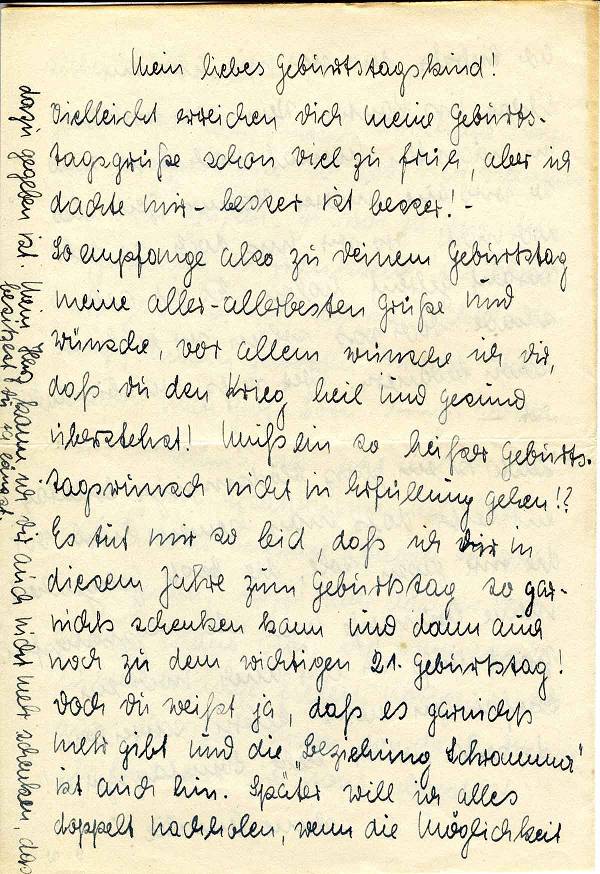 Mein liebes Geburtstagskind!
Vielleicht erreichen Dich meine Geburts-
tagsgrüße schon viel zu früh, aber ich
dachte mir – besser ist besser! –
So empfange also zu Deinem Geburtstag
meine aller-allerbesten Grüße und
Wünsche, vor allem wünsche ich Dir,
daß Du den Krieg heil und gesund
überstehst! Muß ein so heißer Geburts-
tagswunsch nicht in Erfüllung gehen!?
Es tut mir so leid, daß ich Dir in
diesem Jahre zum Geburtstag so gar-
nichts schenken kann und dann auch
noch zu dem wichtigen 21. Geburtstag!
Doch Du weißt ja, daß es garnichts
mehr gibt und die „Beziehung Schramma"
ist auch hin. Später will ich alles
doppelt nachholen, wenn die Möglichkeit
dazu gegeben ist. Mein Herz kann ich Dir auch nicht mehr schenken, das
besitzest Du ja längst.